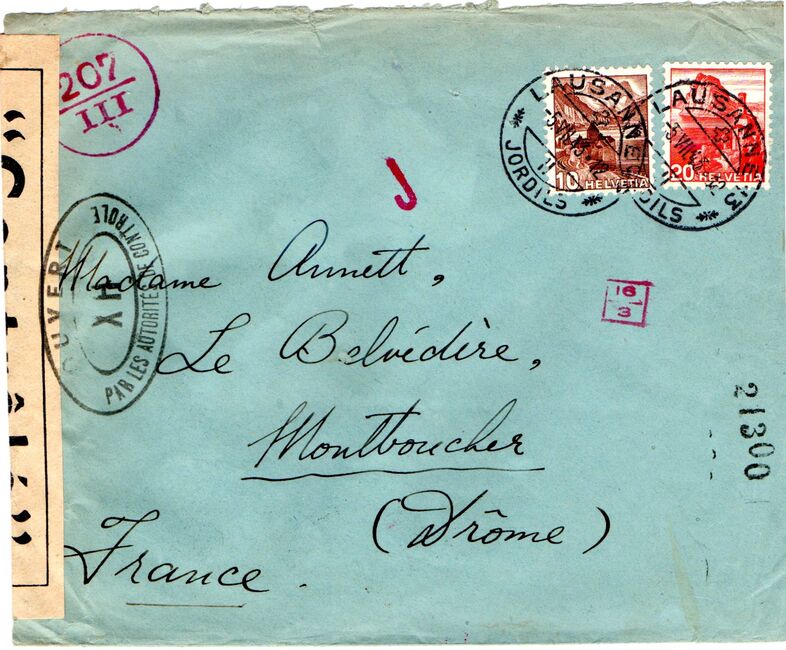 207
III
LAUSANNE
JORDILS
10 HELVETIA
LAUSANNE 13
DILS
20 HELVETIA
J
OUVERT
XH
PAR LES AUTORITÉS DE CONTROLE
16
3
21300
Madame Annett,
Le Belvédère,
Montboucher
(Drôme)
France.